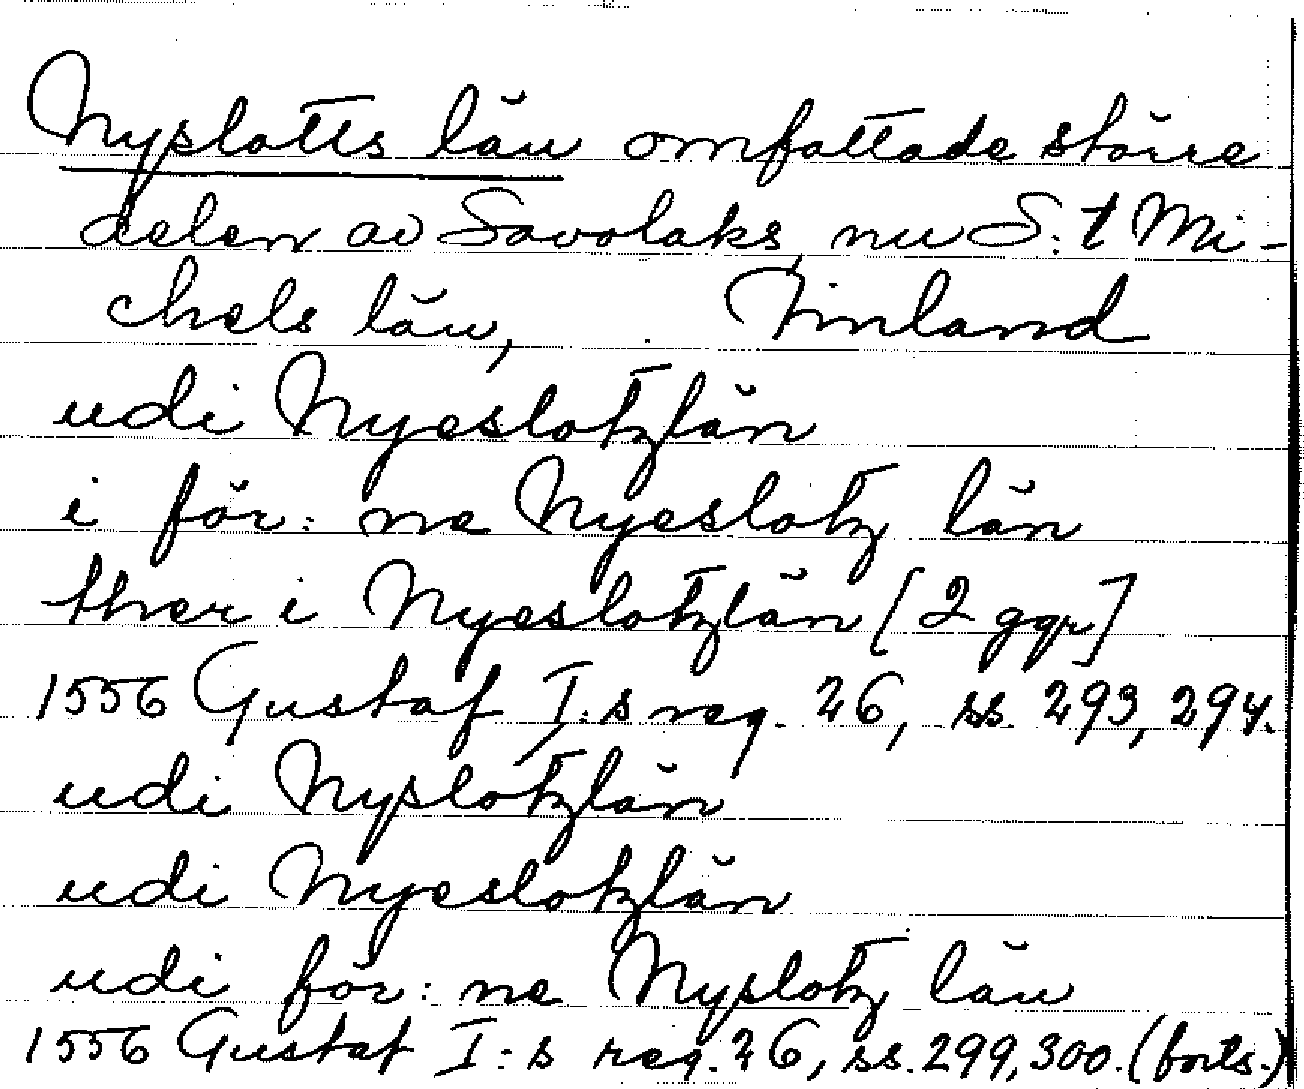 Nyslotts län omfattade större
delen av Savolaks, nu S:t Mi-
chels län, Finland
udi Nyeslotzlän
i för:ne Nyeslotz län
ther i Nyeslotzlän [2 ggr]
1556 Gustaf I:s reg. 26, ss. 293, 294.
udi Nyslotzlän
udi Nyeslotzlän
udi för:ne Nyslotz län
1556 Gustaf I:s reg. 26, ss. 299, 300. (forts.)